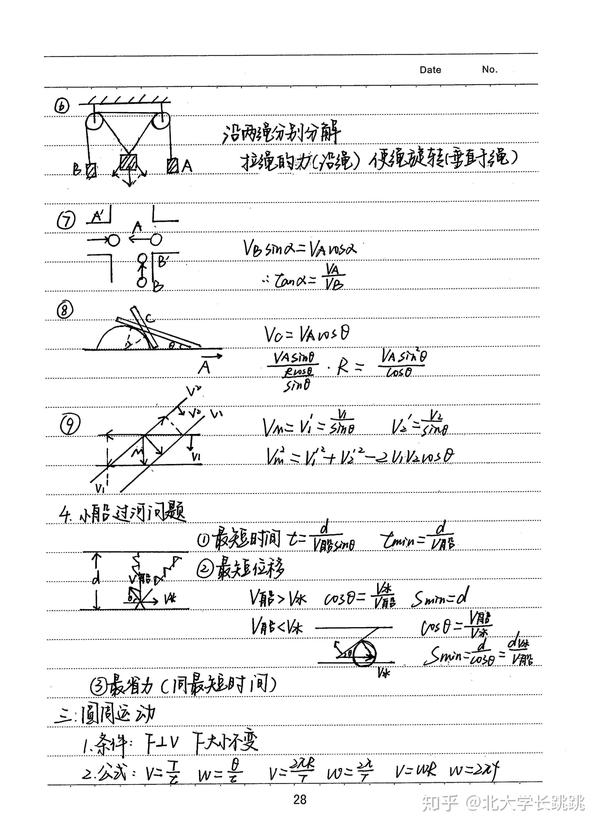 Date No.
⑥
沿两绳分别分解
拉绳的力(沿绳) 使绳旋转(垂直于绳)
B A
⑦ A' A
B'
B
VB sinα = VA cosα
∴ tanα = VA/VB
⑧ C
θ
A
VC = VA cosθ
VA sinθ / (R cosθ / sinθ) · R = VA sin²θ / cosθ
⑨ V2' V2 V1
M
V1 V1
VM = V1' = V1/sinθ V2' = V2/sinθ
VM² = V1'² + V2'² - 2V1V2cosθ
4. 小船过河问题
① 最短时间 t = d/(V船 sinθ) tmin = d/V船
d V船 θ V水
② 最短位移
V船 > V水 cosθ = V水/V船 Smin = d
V船 < V水 cosθ = V船/V水
θ V水
Smin = d/cosθ = dV水/V船
③ 最省力 (同最短时间)
三. 圆周运动
1. 条件: F⊥V F大小不变
2. 公式: V = l/t W = θ/t V = 2πR/T W = 2π/T V = WR W = 2πf
28
知乎 @北大学长跳跳